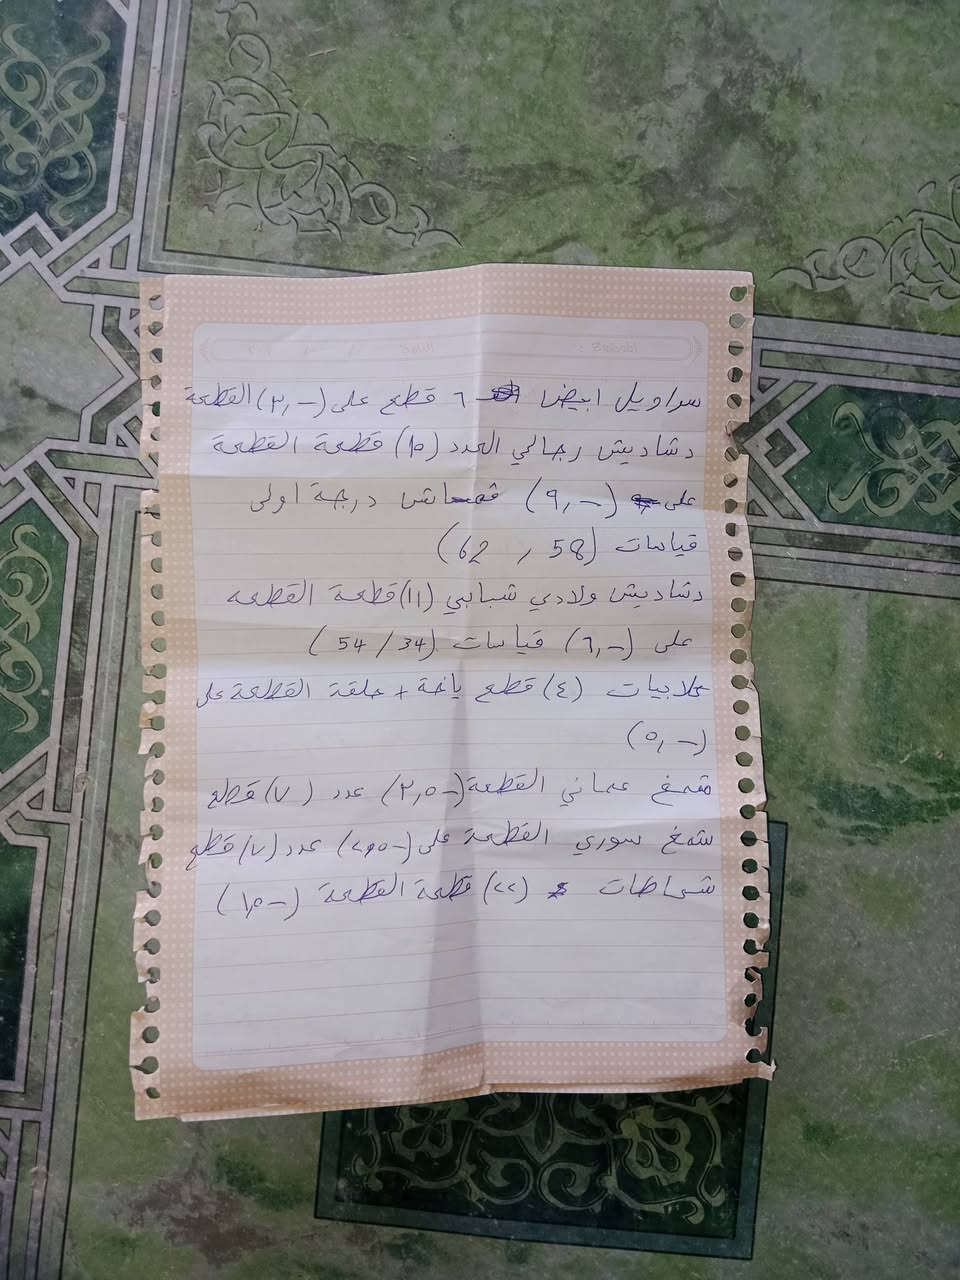 سراويل ابيض ٦ قطع على (٣,-) القطعة
دشاديش رجالي العدد (١٥) قطعة القطعة
على (٩,-) قماش درجة اولى
قياسات (58 , 62)
دشاديش ولادي شبابي (١١) قطعة القطعه
على (٦,-) قياسات (34 / 54)
جلابيات (٤) قطع ياخة + حلقة القطعة على
(٥,-)
شمغ عماني القطعة (٣,٥-) عدد (٧) قطع
شمغ سوري القطعة على (٢,٥-) عدد (٧) قطع
شماطات (٢٢) قطعة القطعة (١,٥-)